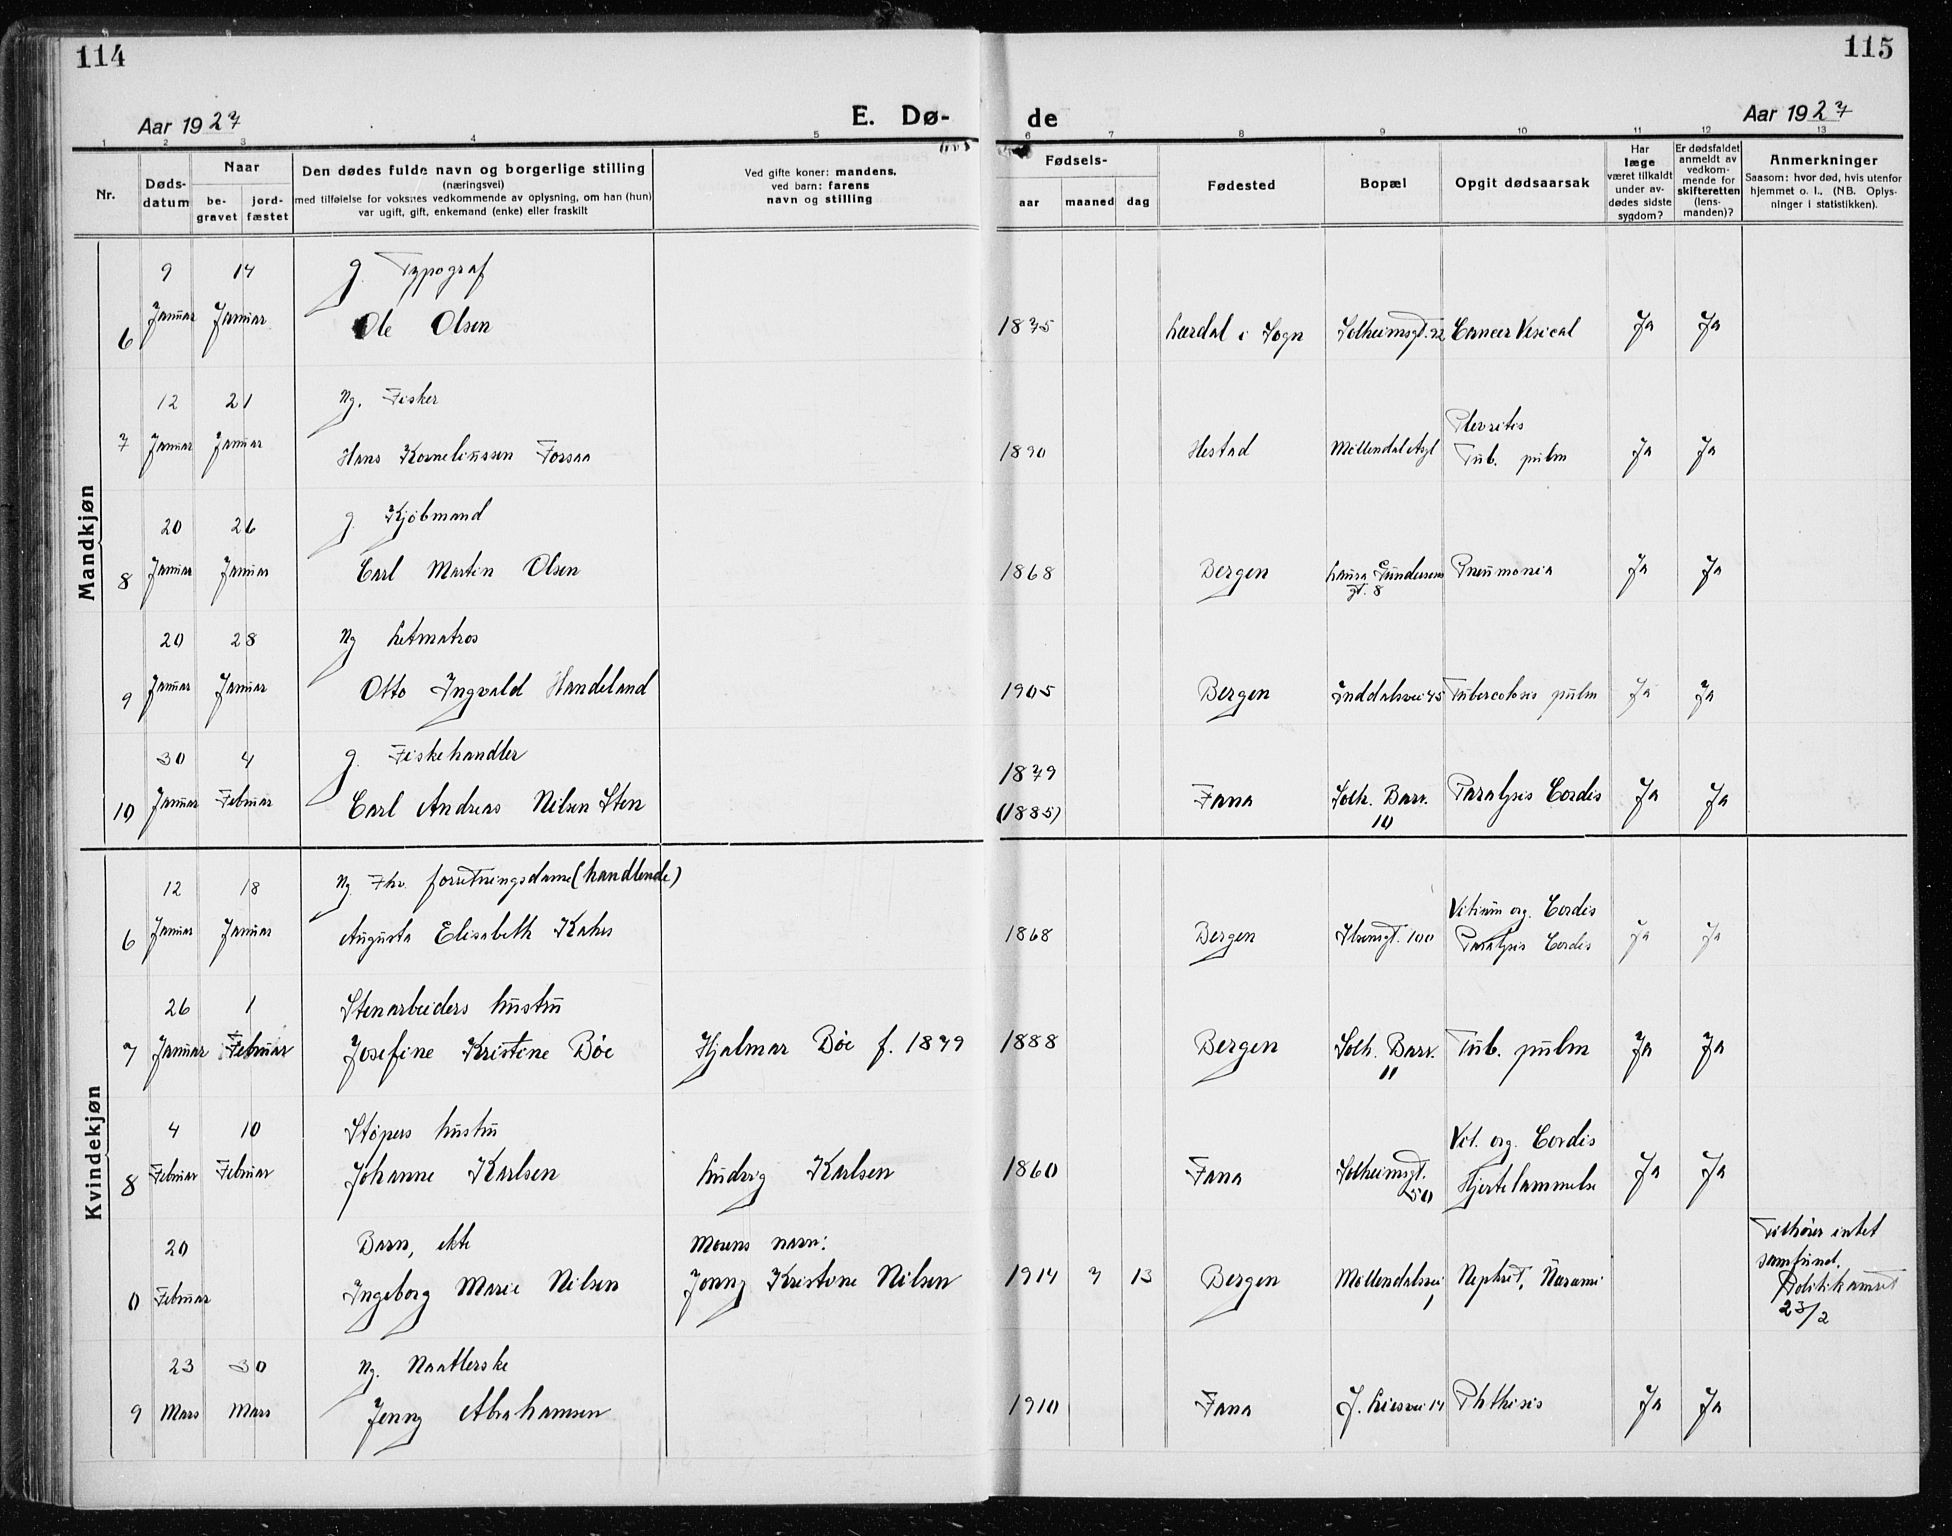 114
115
Aar 1927
E. Dø-
de
Aar 1927
1 2 3 4 5 6 7 8 9 10 11 12 13
Nr.
Døds-
datum
Naar
be-
gravet
jord-
fæstet
Den dødes fulde navn og borgerlige stilling
(næringsvei)
med tilføielse for voksnes vedkommende av oplysning, om han (hun)
var ugift, gift, enkemand (enke) eller fraskilt
Ved gifte koner: mandens,
ved barn: farens
navn og stilling
Fødsels-
aar maaned dag
Fødested
Bopæl
Opgit dødsaarsak
Har
læge
været tilkaldt
under av-
dødes sidste
sygdom?
Er dødsfaldet
anmeldt av
vedkom-
mende for
skifteretten
(lens-
manden)?
Anmerkninger
Saasom: hvor død, hvis utenfor
hjemmet o. l., (NB. Oplys-
ninger i statistikken).
Mandkjøn
9 14 g. Typograf
6 Januar Januar Ole Olsen 1875 Lærdal i Sogn Solheimsgt. 22 Cancer Vesical Ja Ja
12 21 Ug. Fisker Plevritis
7 Januar Januar Hans Korneliussen Forsaa 1890 Hestad Möllendal Asyl Tub. pulm Ja Ja
20 26 g. Kjøbmand
8 Januar Januar Carl Martin Olsen 1868 Bergen Laura Gundersens Pneumonia Ja Ja
gt. 8
20 28 Ug Letmatros
9 Januar Januar Otto Ingvald Handeland 1905 Bergen Inddalsvei 45 Tubercolosis pulm Ja Ja
30 4 g. Fiskehandler 1879
10 Januar Februar Carl Andreas Nilsen Sten (1885) Fana Solh. Barr. Paralysis Cordis Ja Ja
10
Kvindekjøn
12 18 Ug Fhv. forretningsdame (handlende) Vitium org. Cordis
6 Januar Januar Augusta Elisabeth Kahrs 1868 Bergen Ibsensgt. 100 Paralysis Cordis Ja Ja
26 1 Stenarbeiders hustru
7 Januar Februar Josefine Kristine Böe Hjalmar Böe f. 1879 1888 Bergen Solh. Barr. Tub. pulm Ja Ja
11
4 10 Støpers hustru Vit. org. Cordis
8 Februar Februar Johanne Karlsen Ludvig Karlsen 1860 Fana Solheimsgt. Hjertelammelse Ja Ja
50
20 Barn, ekte Morens navn: Tilhører intet
samfund.
0 Februar Ingeborg Marie Nilsen Jenny Kristine Nilsen 1914 7 13 Bergen Möllendalsvei Nephrit, Uræmi Politikamret
1 23/2
23 30 Ug. Naatlerske
9 Mars Mars Jenny Abrahamsen 1910 Fana J. Liesvei 14 Phthisis Ja Ja